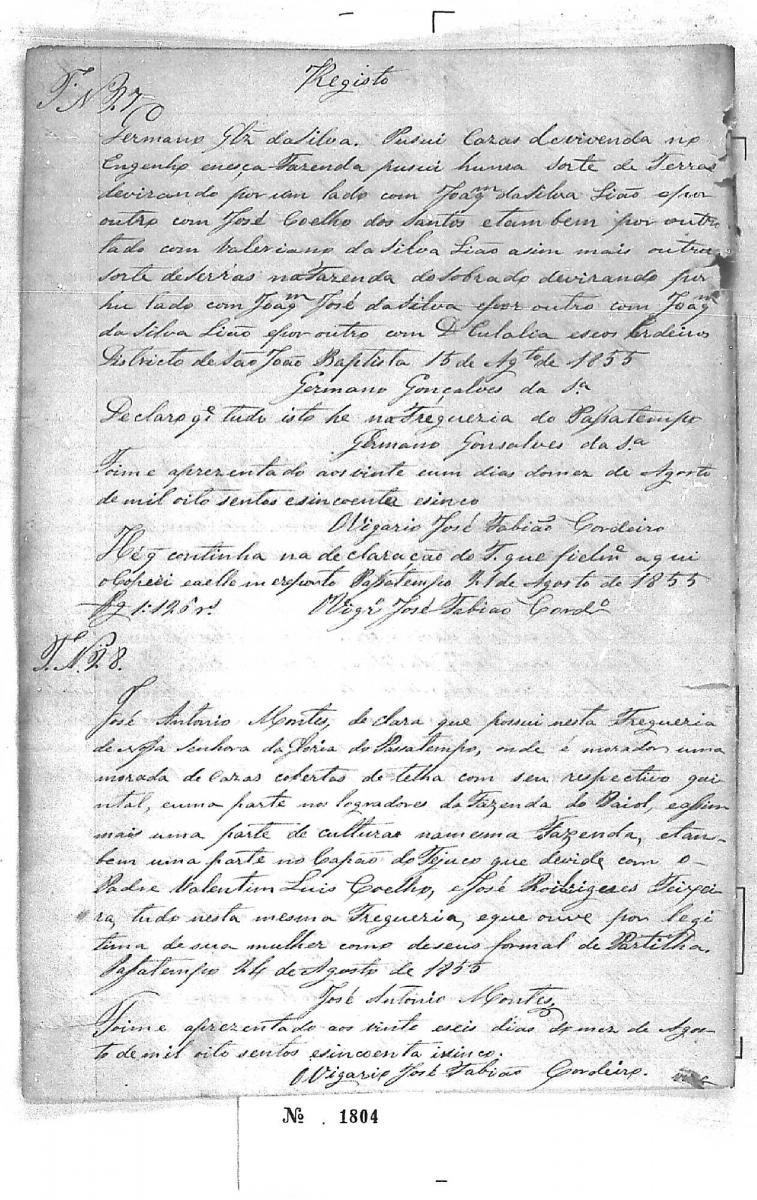 Registo
T. N. 27
Germano Glz da Silva. Pusui Cazas de vivenda no
Engenho enesça Fazenda pusui huma Sorte de Terras
devirando por um lado com Joaqm da Silva Lião epor
outro com José Coelho dos Santos etambem por outro
lado com Valeriano da Silva Lião asim mais outra
sorte de terras na Fazenda do Sobrado devirando por
hu lado com Joaqm José da Silva epor outro com Joaqm
da Silva Lião epor outro com D. Eulalia eseos Erdeiros
Districto de São João Baptista 15 de Agto de 1855
Germano Gonçalves da Sa
Declaro qe tudo isto he na Fregueria do Passatempo
Germano Gonsalves da Sa
Foime aprezentado aos vinte eum dias do mez de Agosto
de mil oito sentos esincoenta esinco
O Vigario José Fabião Cordeiro
Hé q continha na declaração do T. que fielme aqui
o Copeei eaelle me reporto Passatempo 21 de Agosto de 1855
Pg 1:126 rs O Vigro José Fabião Cordo
T. N. 28.
José Antonio Montes, declara que possui nesta Fregueria
de Nossa Senhora da Gloria do Passatempo, onde é morador uma
morada de Cazas cobertas de telha com seu respectivo quin
tal, euma parte nos logradores da Fazenda do Paiol, eassim
mais uma parte de culturas namesma Fazenda, etam-
bem uma parte no Capão do Tijuco que devide com o
Padre Valentim Luis Coelho, e José Rodrigues Teixei
ra, tudo nesta mesma Fregueria, eque ouve por legi
tima de sua mulher como deseus formal de Partilha.
Passatempo 24 de Agosto de 1855
José Antonio Montes,
Foime aprezentado aos vinte eseis dias do mez de Agos-
to de mil oito sentos esincoenta isinco.
O Vigario José Fabião Cordeiro.
No. 1804